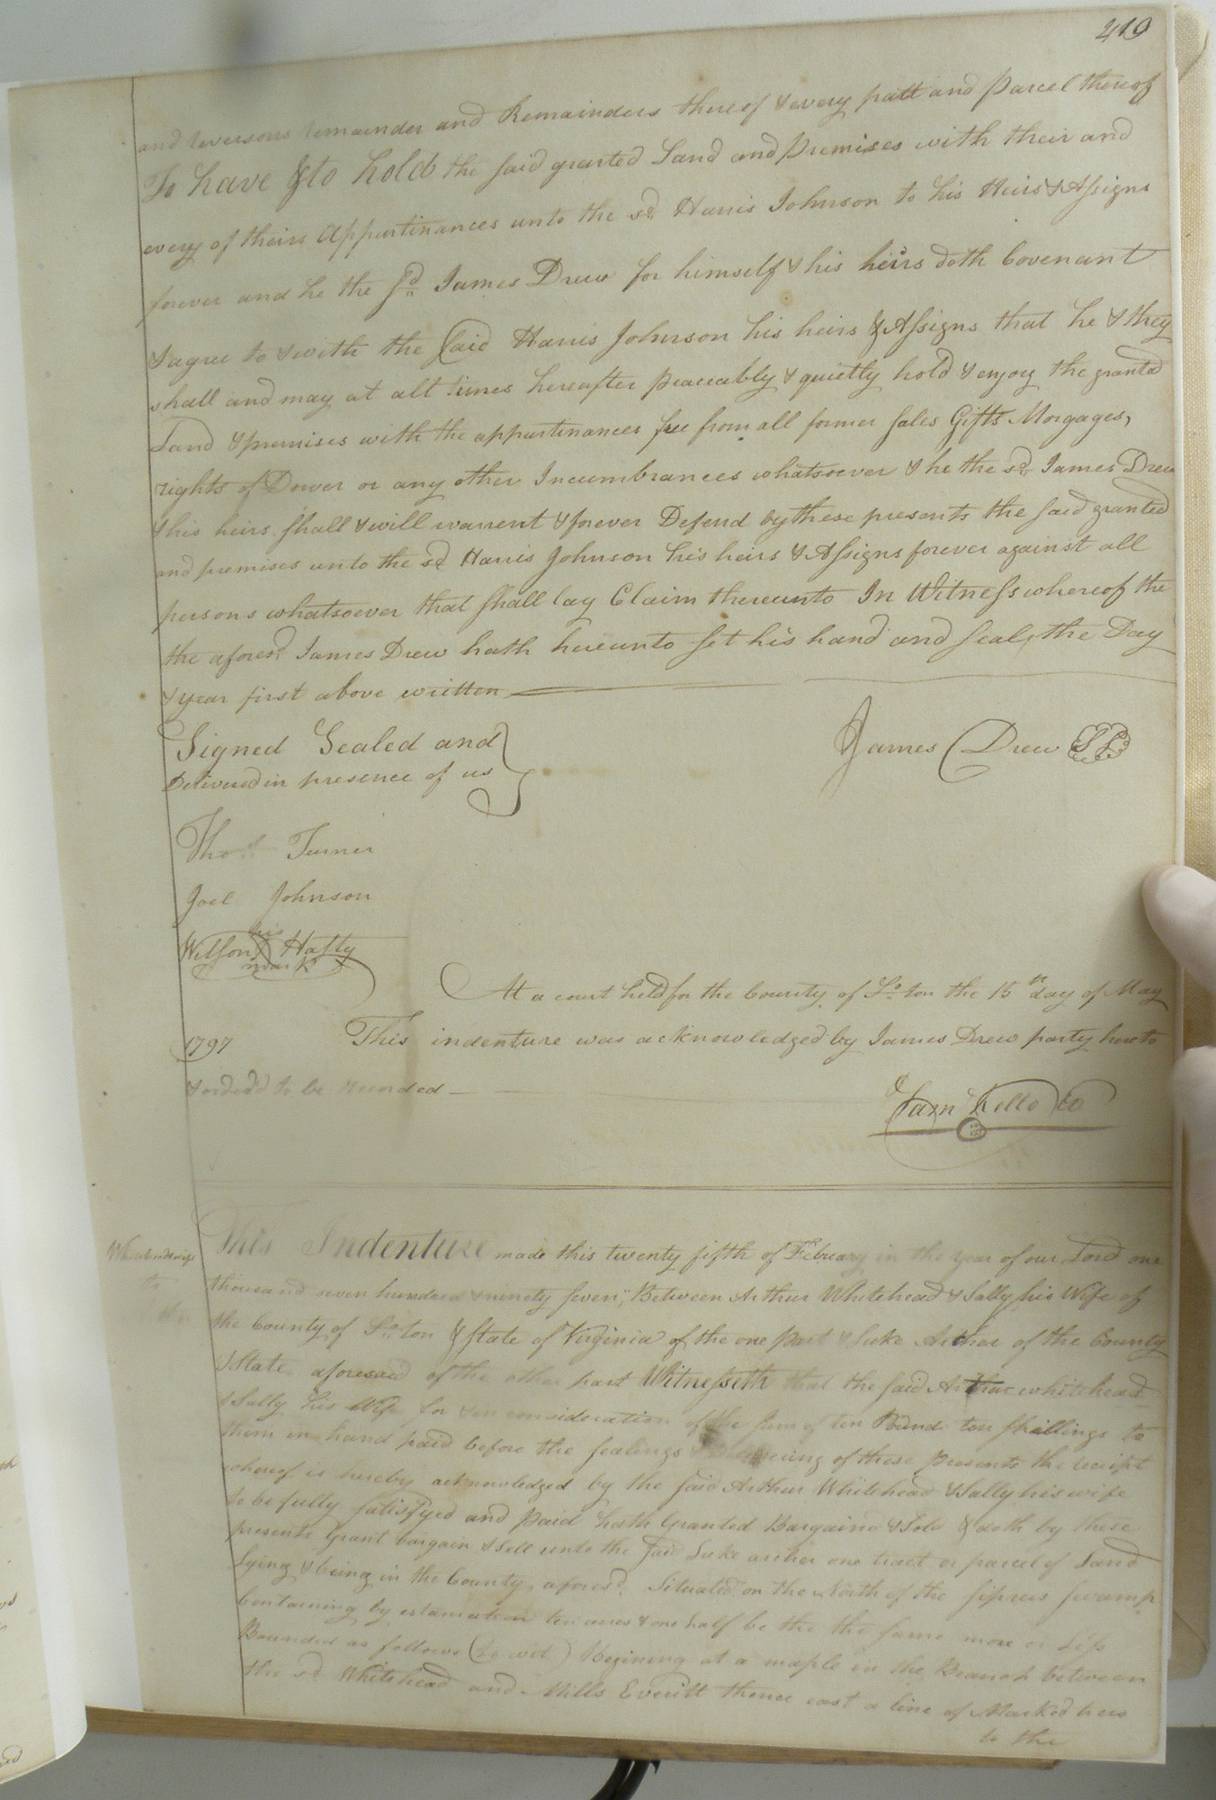 419
and reversons remainder and Remainders thereof & every patt and Parcel thereof
To have & to hold the said granted Land and Premises with their and
every of theirs Appurtinances unto the sd Harris Johnson to his Heirs & Assigns
forever and he the sd James Drew for himself & his heirs doth Covenant
& agree to & with the Said Harris Johnson his heirs & Assigns that he & they
shall and may at all times hereafter peaceably & quietly hold & enjoy the granted
Land & premises with the appurtinances free from all former sales Gifts Morgages,
rights of Dower or any other Incumbrances whatsoever & he the sd James Drew
& his heirs shall & will warrent & forever Defend by these presents the said granted
and premises unto the sd Harris Johnson his heirs & Assigns forever against all
persons whatsoever that shall lay Claim thereunto In Witness whereof the
the aforesd James Drew hath hereunto set his hand and seal, the Day
& year first above written
Signed Sealed and
Delivered in presence of us
James Drew LS
Thos Turner
Joel Johnson
his
Willson Hasty
mark
At a court held for the County of So. ton the 15th day of May
1797 This indenture was acknowledged by James Drew party hereto
& orderd to be recorded
Sam Kello CC
This Indenture made this twenty fifth of Febuary in the year of our Lord one
thousand seven hundred & ninety seven, Between Arthur Whitehead & Sally his Wife of
the County of So. ton & State of Virginia of the one part & Luke Archer of the County
& State aforesaid of the other part Witnesseth that the said Arthur whitehead
& Sally his Wife for & in consideration of the sum of ten Pound ten shillings to
them in hand paid before the sealings & of these presents the receipt
whereof is hereby acknowledged by the said Arthur Whitehead & Sally his wife
to be fully satisfyed and paid hath Granted Bargaind & Sold & doth by these
presents Grant bargain & Sell unto the said Luke archer one tract or parcel of Land
Lying & being in the County aforesd. Situated on the North of the sipress swamp
Containing by estamation ten acres & one half be the the same more or Less
Bounded as follows (to wit) Begining at a maple in the Branch between
the sd Whitehead and Mills Everitt thence east a line of Marked trees
to the